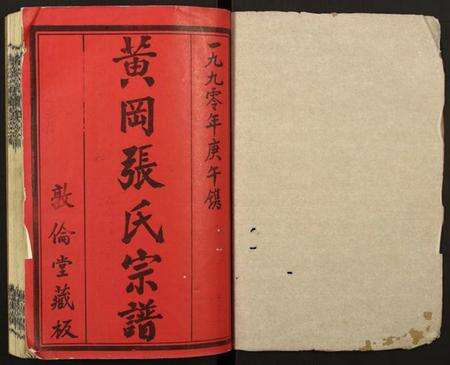 一九九零年庚午鐫
黃岡張氏宗譜
敦倫堂藏板